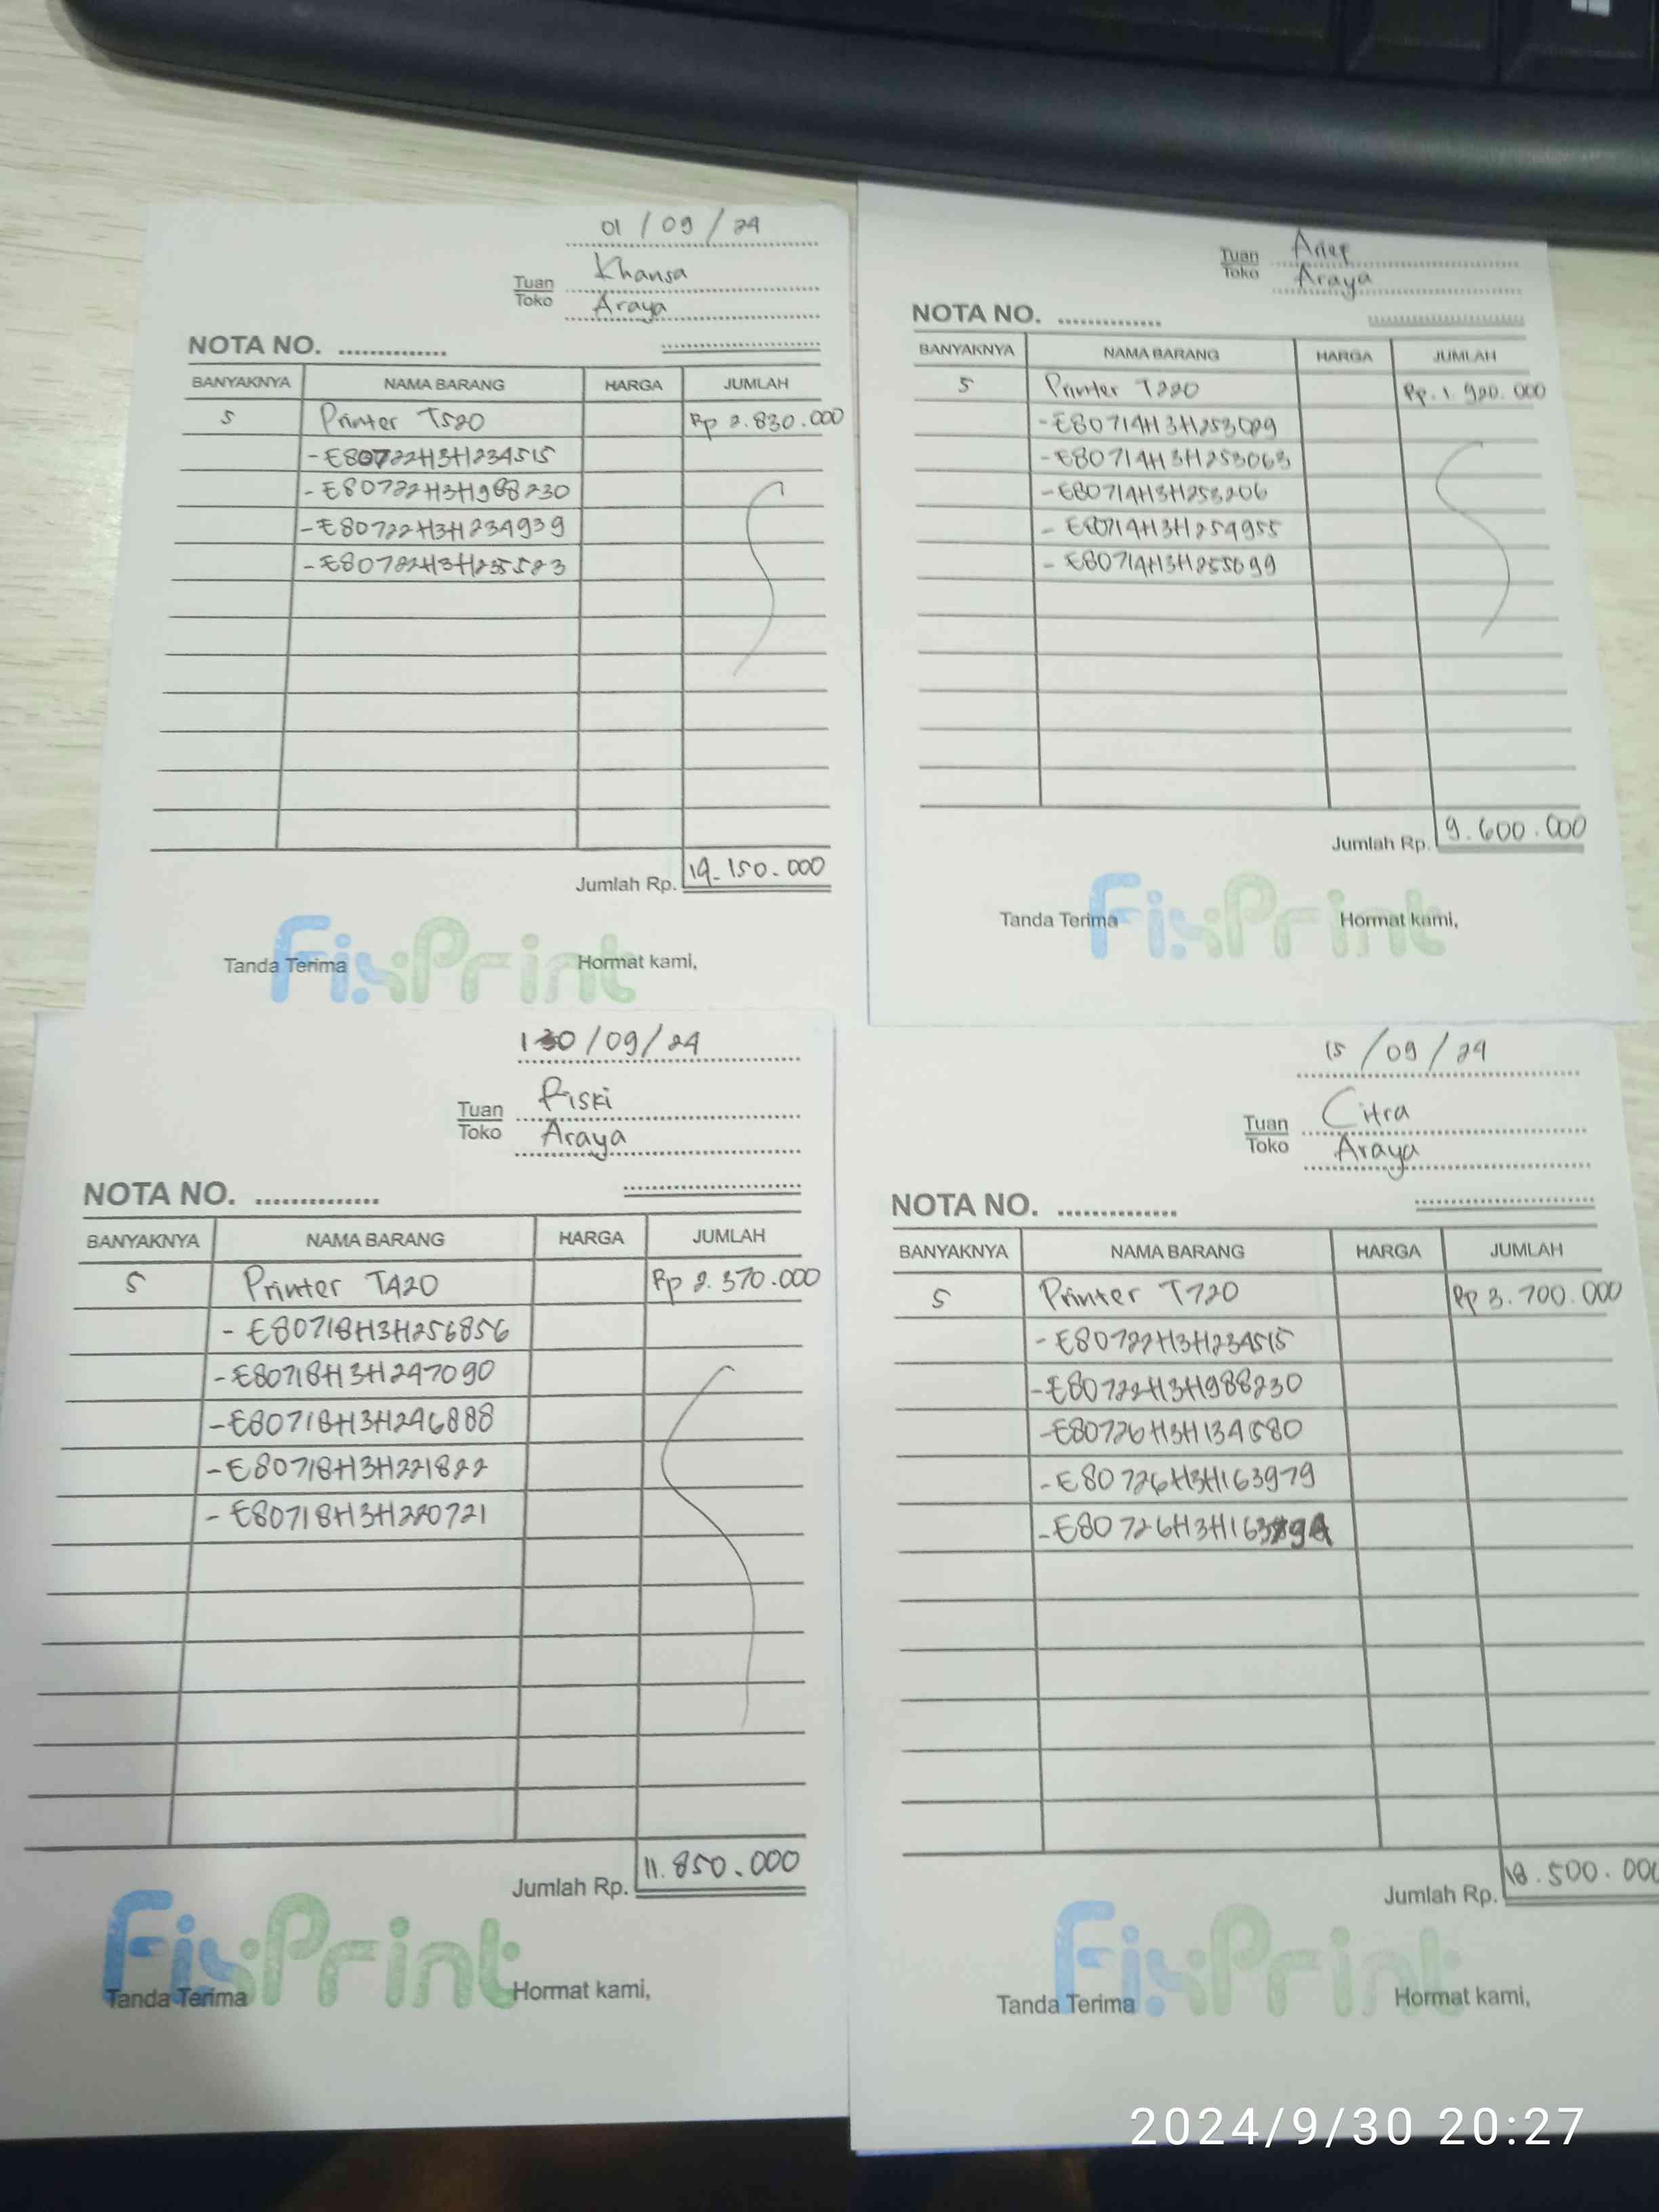 01 / 09 / 24
Tuan
Toko
Khansa
Araya
NOTA NO. ..............
BANYAKNYA NAMA BARANG HARGA JUMLAH
5 Printer T520 Rp 2.830.000
- E80722H3H234515
- E80722H3H988230
- E80722H3H234939
- E80722H3H235523
Jumlah Rp. 14.150.000
FixPrint
Tanda Terima Hormat kami,
Tuan
Toko
Arief
Araya
NOTA NO. ..............
BANYAKNYA NAMA BARANG HARGA JUMLAH
5 Printer T220 Rp. 1.920.000
- E80714H3H253029
- E80714H3H253063
- E80714H3H253206
- E80714H3H254955
- E80714H3H255099
Jumlah Rp. 9.600.000
FixPrint
Tanda Terima Hormat kami,
/09/24
Tuan
Toko
Riski
Araya
NOTA NO. ..............
BANYAKNYA NAMA BARANG HARGA JUMLAH
5 Printer T420 Rp 2.370.000
- E80718H3H256856
- E80718H3H247090
- E80718H3H246888
- E80718H3H221822
- E80718H3H220721
Jumlah Rp. 11.850.000
FixPrint
Tanda Terima Hormat kami,
15 / 09 / 24
Tuan
Toko
Citra
Araya
NOTA NO. ..............
BANYAKNYA NAMA BARANG HARGA JUMLAH
5 Printer T720 Rp 3.700.000
- E80722H3H234515
- E80722H3H988230
- E80726H3H134580
- E80726H3H163979
Jumlah Rp. 18.500.000
FixPrint
Tanda Terima Hormat kami,
2024/9/30 20:27